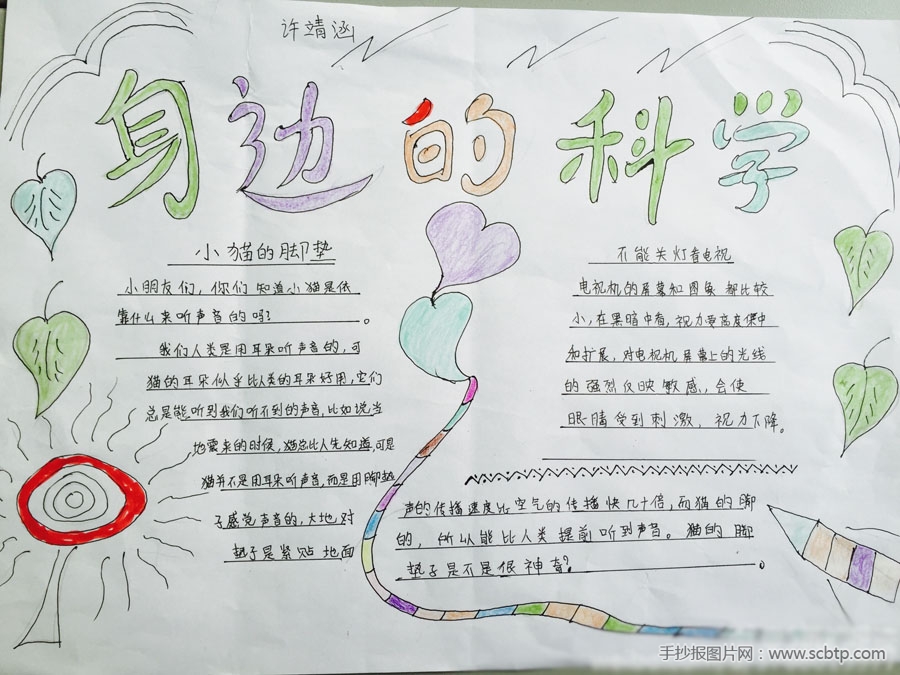 许靖涵
身边的科学
小猫的脚垫
小朋友们，你们知道小猫是依
靠什么来听声音的吗？。
我们人类是用耳朵听声音的，可
猫的耳朵似乎比人类的耳朵好用，它们
总是能听到我们听不到的声音，比如说当
地震来的时候，猫总比人先知道，可是
猫并不是用耳朵听声音，而是用脚垫
子感觉声音的，大地对
垫子是紧贴地面
声的传播速度比空气的传播快几十倍，而猫的脚
的，所以能比人类提前听到声音。猫的脚
垫子是不是很神奇？。
不能关灯看电视
电视机的屏幕和图象都比较
小，在黑暗中看，视力要高度集中
和扩展，对电视机屏幕上的光线
的强烈反映敏感，会使
眼睛受到刺激，视力下降。
手抄报图片网：www.scbtp.com